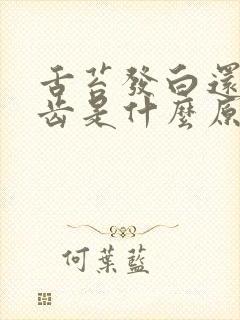 舌苔發白還
齒是什麼原
何葉藍